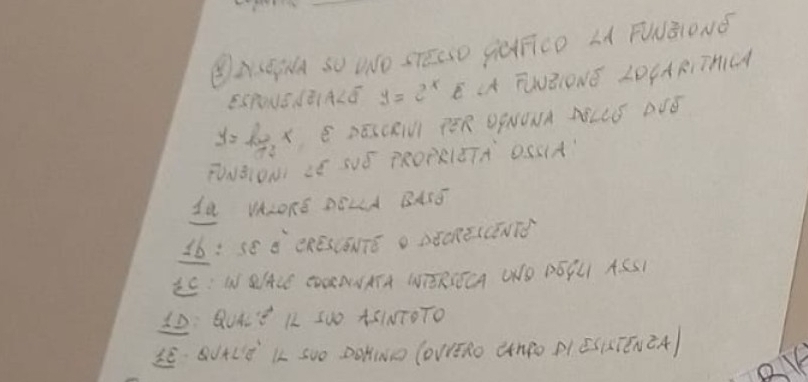 ① DISEGNA SU UNO STESSO GRAFICO LA FUNZIONE
ESPONENZIALE y = 2ˣ E LA FUNZIONE LOGARITMICA
y = log₂ x, E DESCRIVI PER OGNUNA DELLE DUE
FUNZIONI LE SUE PROPRIETA' OSSIA'
1a VALORE DELLA BASE
1b: SE È CRESCENTE O DECRESCENTE
1C: IN QUALE COORDINATA INTERSECA UNO DEGLI ASSI
1D: QUAL'È IL SUO ASINTOTO
1E: QUAL'È IL SUO DOMINIO (OVVERO CAMPO DI ESISTENZA)